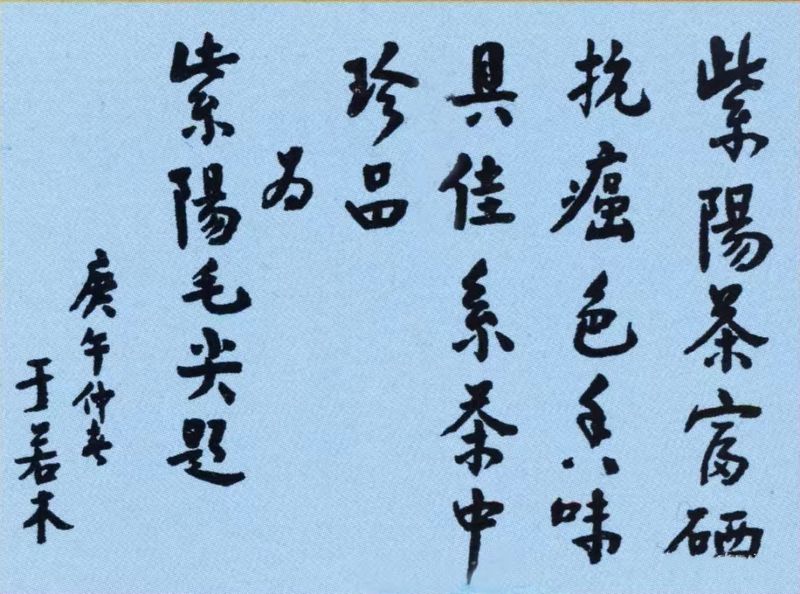 紫陽茶富硒
抗癌色香味
具佳系茶中
珍品
为
紫陽毛尖题
庚午仲春
于若木